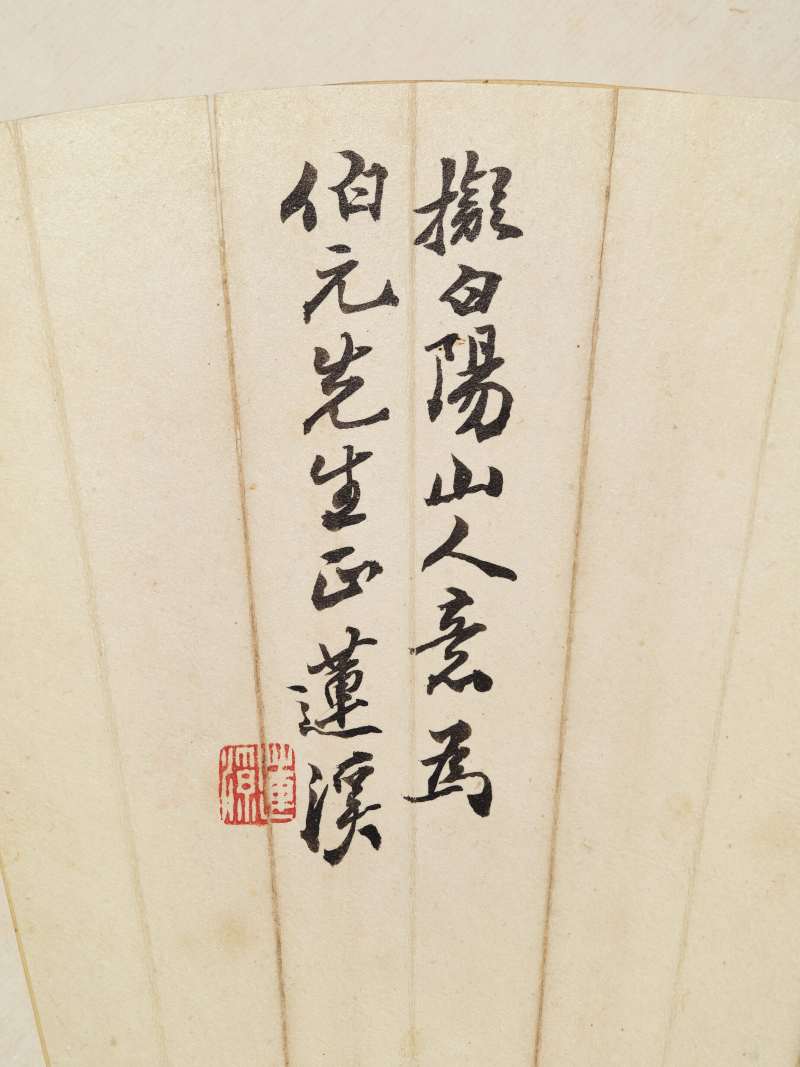 擬白陽山人意為
伯元先生正蓮溪
蓮溪